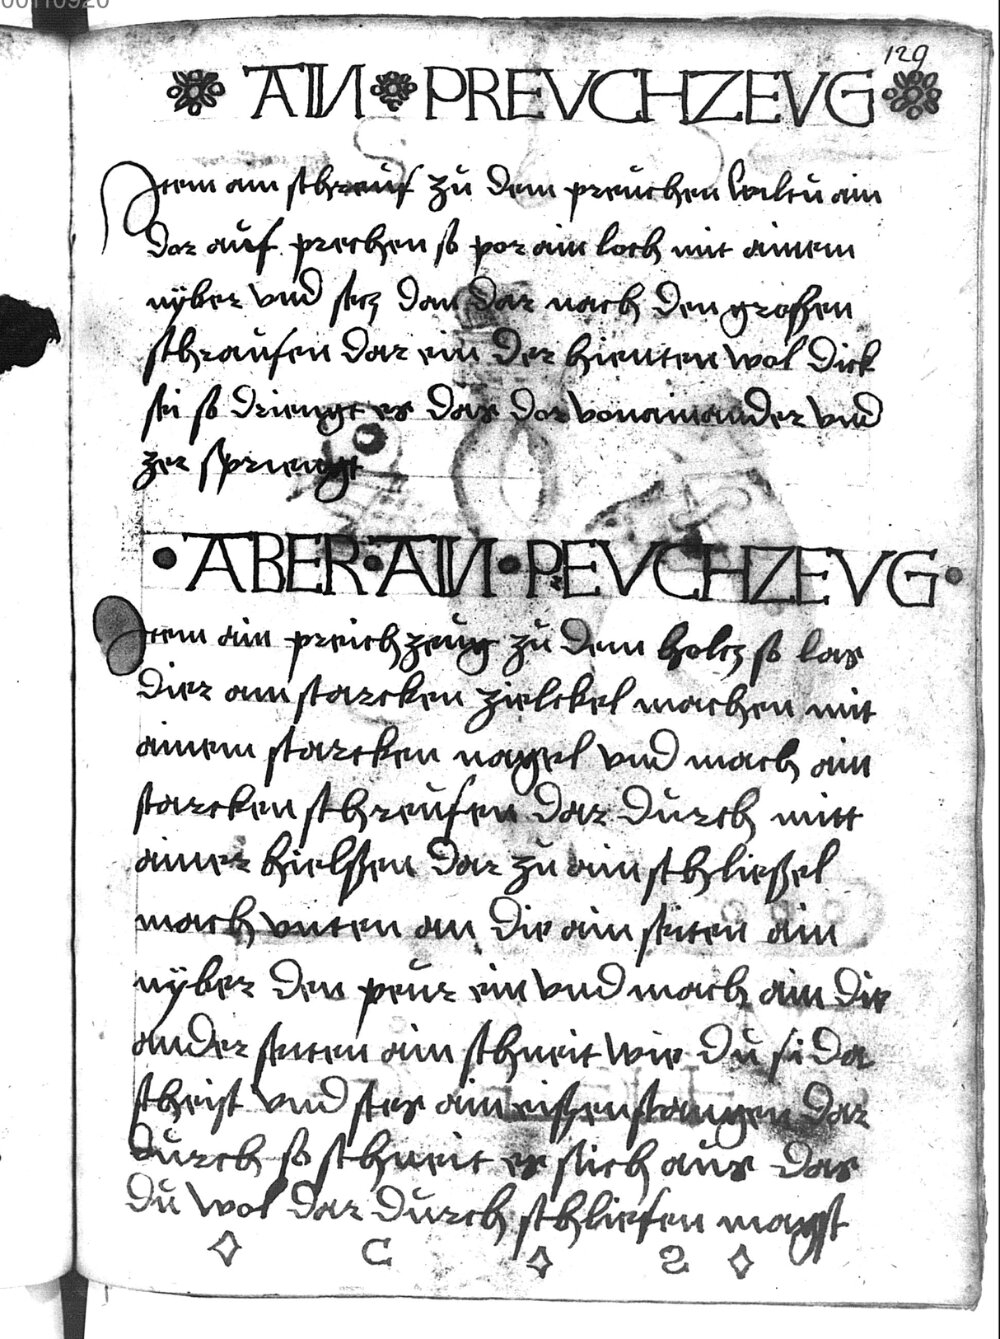 00110920
129
AIN PREVCHZEVG
Item ain schrauf zu dem preuchen wiltu ain
dor auf prechen so por ain loch mit ainem
nyber vnd secz dan dar nach den grossen
schraufen dar ein der hienten wol dick
sei so driengt es das dor vonainander vnd
zer sprienget
ABER AIN PREVCHZEVG
Item ain preichzeug zu dem holcz so las
dier ain starcken zielckel machen mit
ainem starcken nagel vnd mach ain
starcken schreufen dar durch mitt
ainer hielssen dar zu ain schliessel
mach vnten an die ain seiten ain
nyber den peur ein vnd mach ain die
ander seiten ain schneit wie du si da
sheist vnd stes ain eissenstangen dar
durch so schneit es sich aus das
du wol dar durch schliefen magst
C 2